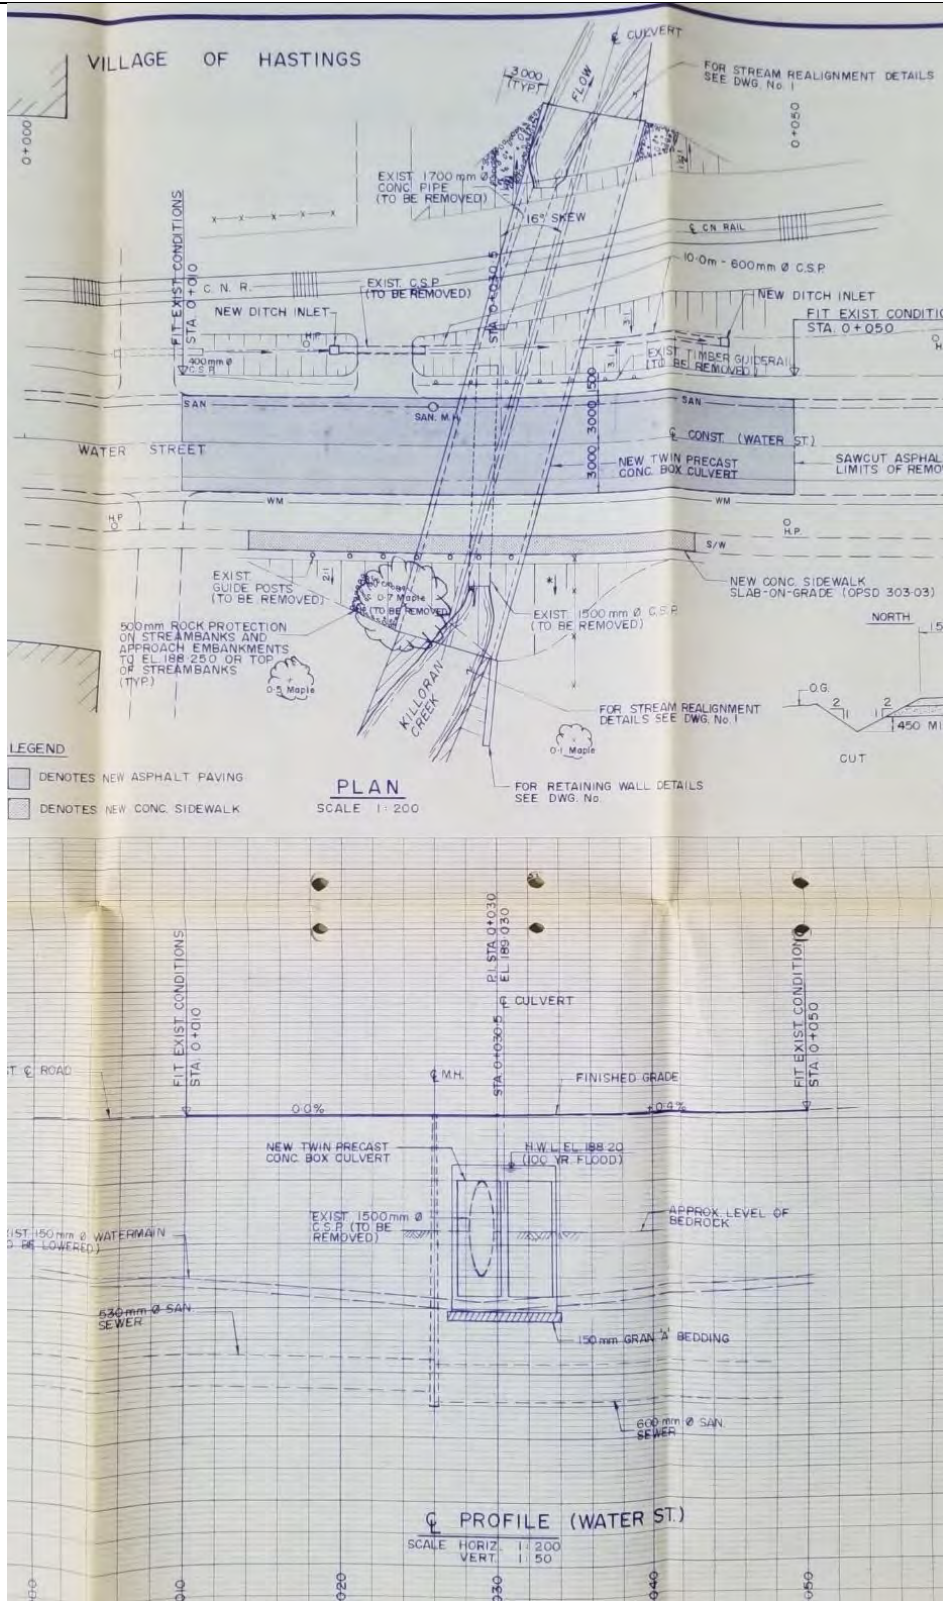 VILLAGE OF HASTINGS
℄ CULVERT
3000
(TYP)
FLOW
FOR STREAM REALIGNMENT DETAILS
SEE DWG. No. 1
0+000
0+050
EXIST 1700mm Ø
CONC PIPE
(TO BE REMOVED)
16° SKEW
℄ CN RAIL
FIT EXIST CONDITIONS
STA. 0+010
STA. 0+030.5
C. N. R.
EXIST C.S.P.
(TO BE REMOVED)
10.0m - 600mm Ø C.S.P.
NEW DITCH INLET
NEW DITCH INLET
FIT EXIST CONDITIO
STA. 0+050
H.P.
H
3:1
3:1
400mm Ø
C.S.P.
EXIST TIMBER GUIDERAIL
(TO BE REMOVED)
SAN
SAN. M.H.
SAN
3000 3000 1500
WATER STREET
℄ CONST. (WATER ST.)
NEW TWIN PRECAST
CONC. BOX CULVERT
SAWCUT ASPHAL
LIMITS OF REMO
WM
WM
H.P.
H.P.
S/W
EXIST
GUIDE POSTS
(TO BE REMOVED)
2:1
0.7 Maple
(TO BE REMOVED)
EXIST 1500mm Ø C.S.P.
(TO BE REMOVED)
NEW CONC. SIDEWALK
SLAB-ON-GRADE (OPSD 303-03)
500mm ROCK PROTECTION
ON STREAMBANKS AND
APPROACH EMBANKMENTS
TO EL 188.250 OR TOP
OF STREAMBANKS
(TYP)
0.5 Maple
KILLORAN
CREEK
FOR STREAM REALIGNMENT
DETAILS SEE DWG. No. 1
0.1 Maple
NORTH
1.5
O.G.
2
1
2
1
450 MI
CUT
LEGEND
DENOTES NEW ASPHALT PAVING
DENOTES NEW CONC. SIDEWALK
PLAN
SCALE 1:200
FOR RETAINING WALL DETAILS
SEE DWG. No.
FIT EXIST CONDITIONS
STA. 0+010
P.I. STA. 0+030
EL 189.030
℄ CULVERT
STA 0+030.5
FIT EXIST CONDITIONS
STA. 0+050
T ℄ ROAD
℄ M.H.
FINISHED GRADE
0.0%
+0.4%
NEW TWIN PRECAST
CONC. BOX CULVERT
H.W.L. EL 188.20
(100 YR. FLOOD)
EXIST 1500mm Ø
C.S.P. (TO BE
REMOVED)
APPROX. LEVEL OF
BEDROCK
IST 150mm Ø WATERMAIN
O BE LOWERED)
530mm Ø SAN.
SEWER
150mm GRAN 'A' BEDDING
600mm Ø SAN.
SEWER
℄ PROFILE (WATER ST.)
SCALE HORIZ. 1:200
VERT. 1:50
000
010
020
030
040
050